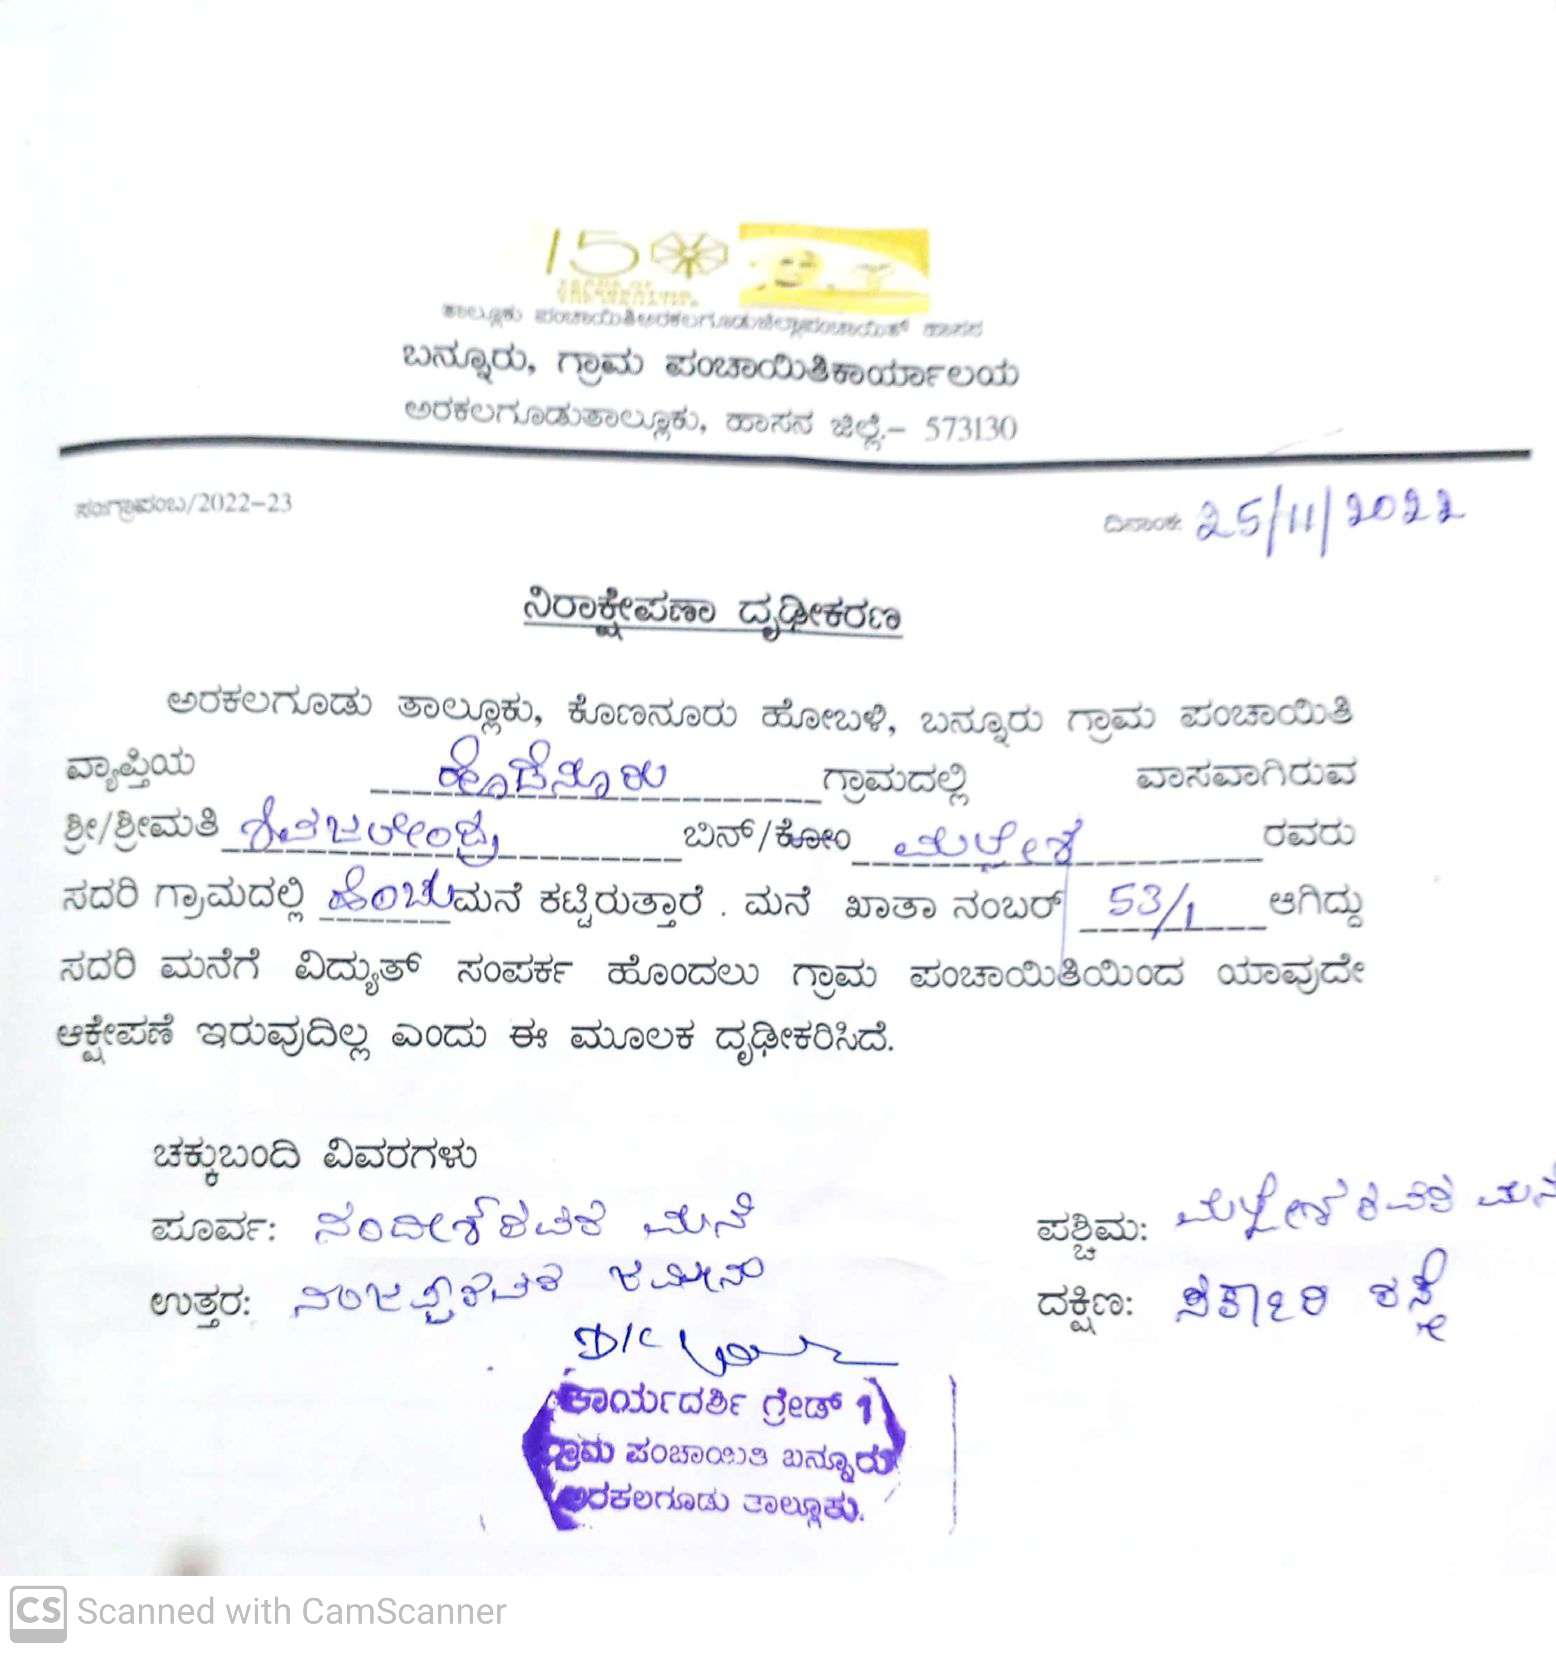 150
ತಾಲ್ಲೂಕು ಪಂಚಾಯಿತಿಅರಕಲಗೂಡುಜಿಲ್ಲಾಪಂಚಾಯಿತ್ ಹಾಸನ
ಬನ್ನೂರು, ಗ್ರಾಮ ಪಂಚಾಯಿತಿಕಾರ್ಯಾಲಯ
ಅರಕಲಗೂಡುತಾಲ್ಲೂಕು, ಹಾಸನ ಜಿಲ್ಲೆ.– 573130
ಸಂ:ಗ್ರಾಪಂಬ/2022–23
ದಿನಾಂಕ: 25/11/2022
ನಿರಾಕ್ಷೇಪಣಾ ದೃಢೀಕರಣ
ಅರಕಲಗೂಡು ತಾಲ್ಲೂಕು, ಕೊಣನೂರು ಹೋಬಳಿ, ಬನ್ನೂರು ಗ್ರಾಮ ಪಂಚಾಯಿತಿ
ವ್ಯಾಪ್ತಿಯ ಹೊಡೆನೂರು ಗ್ರಾಮದಲ್ಲಿ ವಾಸವಾಗಿರುವ
ಶ್ರೀ/ಶ್ರೀಮತಿ ಬಿನ್/ಕೋಂ ಮಲ್ಲೇಶ ರವರು
ಸದರಿ ಗ್ರಾಮದಲ್ಲಿ ಹೆಂಚು ಮನೆ ಕಟ್ಟಿರುತ್ತಾರೆ . ಮನೆ ಖಾತಾ ನಂಬರ್ 53/1 ಆಗಿದ್ದು
ಸದರಿ ಮನೆಗೆ ವಿದ್ಯುತ್ ಸಂಪರ್ಕ ಹೊಂದಲು ಗ್ರಾಮ ಪಂಚಾಯಿತಿಯಿಂದ ಯಾವುದೇ
ಆಕ್ಷೇಪಣೆ ಇರುವುದಿಲ್ಲ ಎಂದು ಈ ಮೂಲಕ ದೃಢೀಕರಿಸಿದೆ.
ಚಕ್ಕುಬಂದಿ ವಿವರಗಳು
ಪೂರ್ವ: ನಂದೀಶ್‌ರವರ ಮನೆ
ಪಶ್ಚಿಮ: ಮಲ್ಲೇಶ್ ರವರ ಮನೆ
ಉತ್ತರ: ನಂಜಪ್ಪರವರ ಜಮೀನು
ದಕ್ಷಿಣ: ಸರ್ಕಾರಿ ರಸ್ತೆ
ಕಾರ್ಯದರ್ಶಿ ಗ್ರೇಡ್ 1
ಗ್ರಾಮ ಪಂಚಾಯಿತಿ ಬನ್ನೂರು
ಅರಕಲಗೂಡು ತಾಲ್ಲೂಕು.
CS Scanned with CamScanner